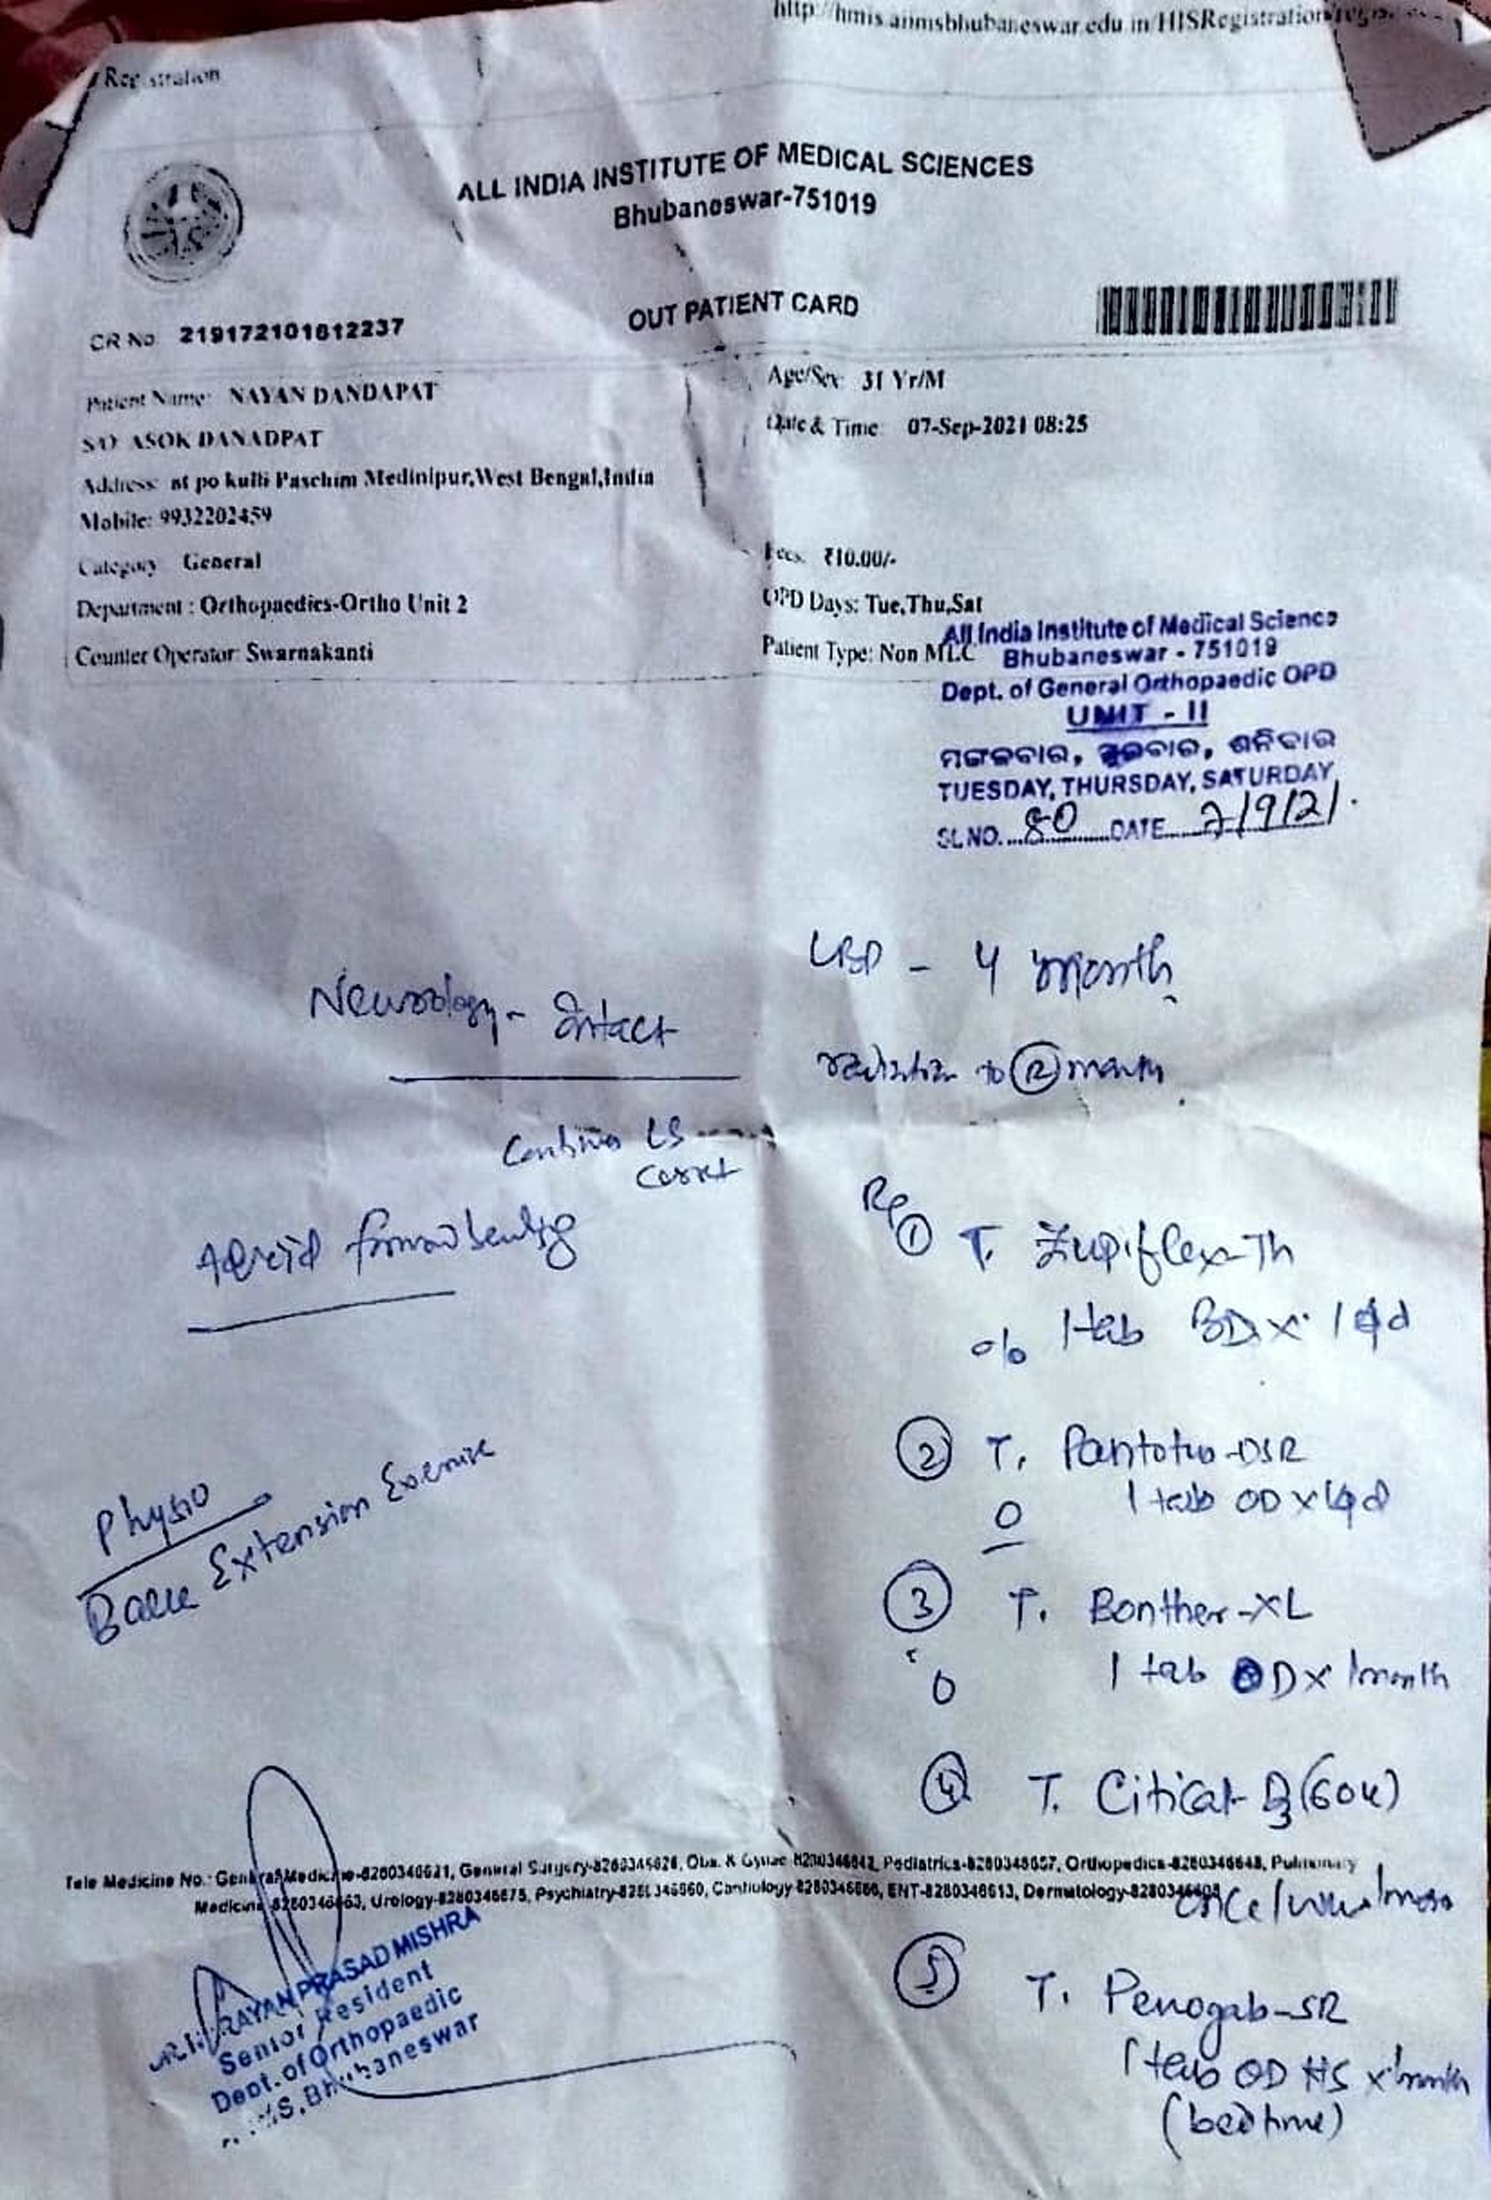 http://hmis.aiimsbhubaneswar.edu.in/HISRegistration/regis
Registration
ALL INDIA INSTITUTE OF MEDICAL SCIENCES
Bhubaneswar-751019
OUT PATIENT CARD
CR No 219172101812237
Patient Name: NAYAN DANDAPAT
Age/Sex: 31 Yr/M
S/O ASOK DANADPAT
Date & Time: 07-Sep-2021 08:25
Address: at po kulti Paschim Medinipur,West Bengal,India
Mobile: 9932202459
Category General
Fees: ₹10.00/-
Department : Orthopaedics-Ortho Unit 2
OPD Days: Tue,Thu,Sat
Counter Operator: Swarnakanti
Patient Type: Non MLC
All India Institute of Medical Science
Bhubaneswar - 751019
Dept. of General Orthopaedic OPD
UNIT - II
ମଙ୍ଗଳବାର, ଗୁରୁବାର, ଶନିବାର
TUESDAY, THURSDAY, SATURDAY
SL.NO. 80 DATE 7/9/21.
LBP - 4 month
Neurology - Intact
radiation to Ⓡ
Continue LS
Corset
Avoid forward bending
Rx
① T.
1 tab BD x
② T. -DSR
1 tab OD x
Physio
Back Extension Exercise
③ T. Bonther-XL
1 tab OD x 1 month
④ T. Citical-D3 (60k)
Tele Medicine No.: General Medicine-8280346621, General Surgery-8280345628, Obs. & Gynae 8280346642, Pediatrics-8280346657, Orthopedics-8280346648, Pulmonary
Medicine-8280346663, Urology-8280346675, Psychiatry-8280346660, Cardiology-8280346666, ENT-8280346613, Dermatology-
once/
⑤ T. Penogab-SR
1 tab OD HS x 1 month
(bedtime)
NARAYAN PRASAD MISHRA
Senior Resident
Dept. of Orthopaedic
AIIMS, Bhubaneswar